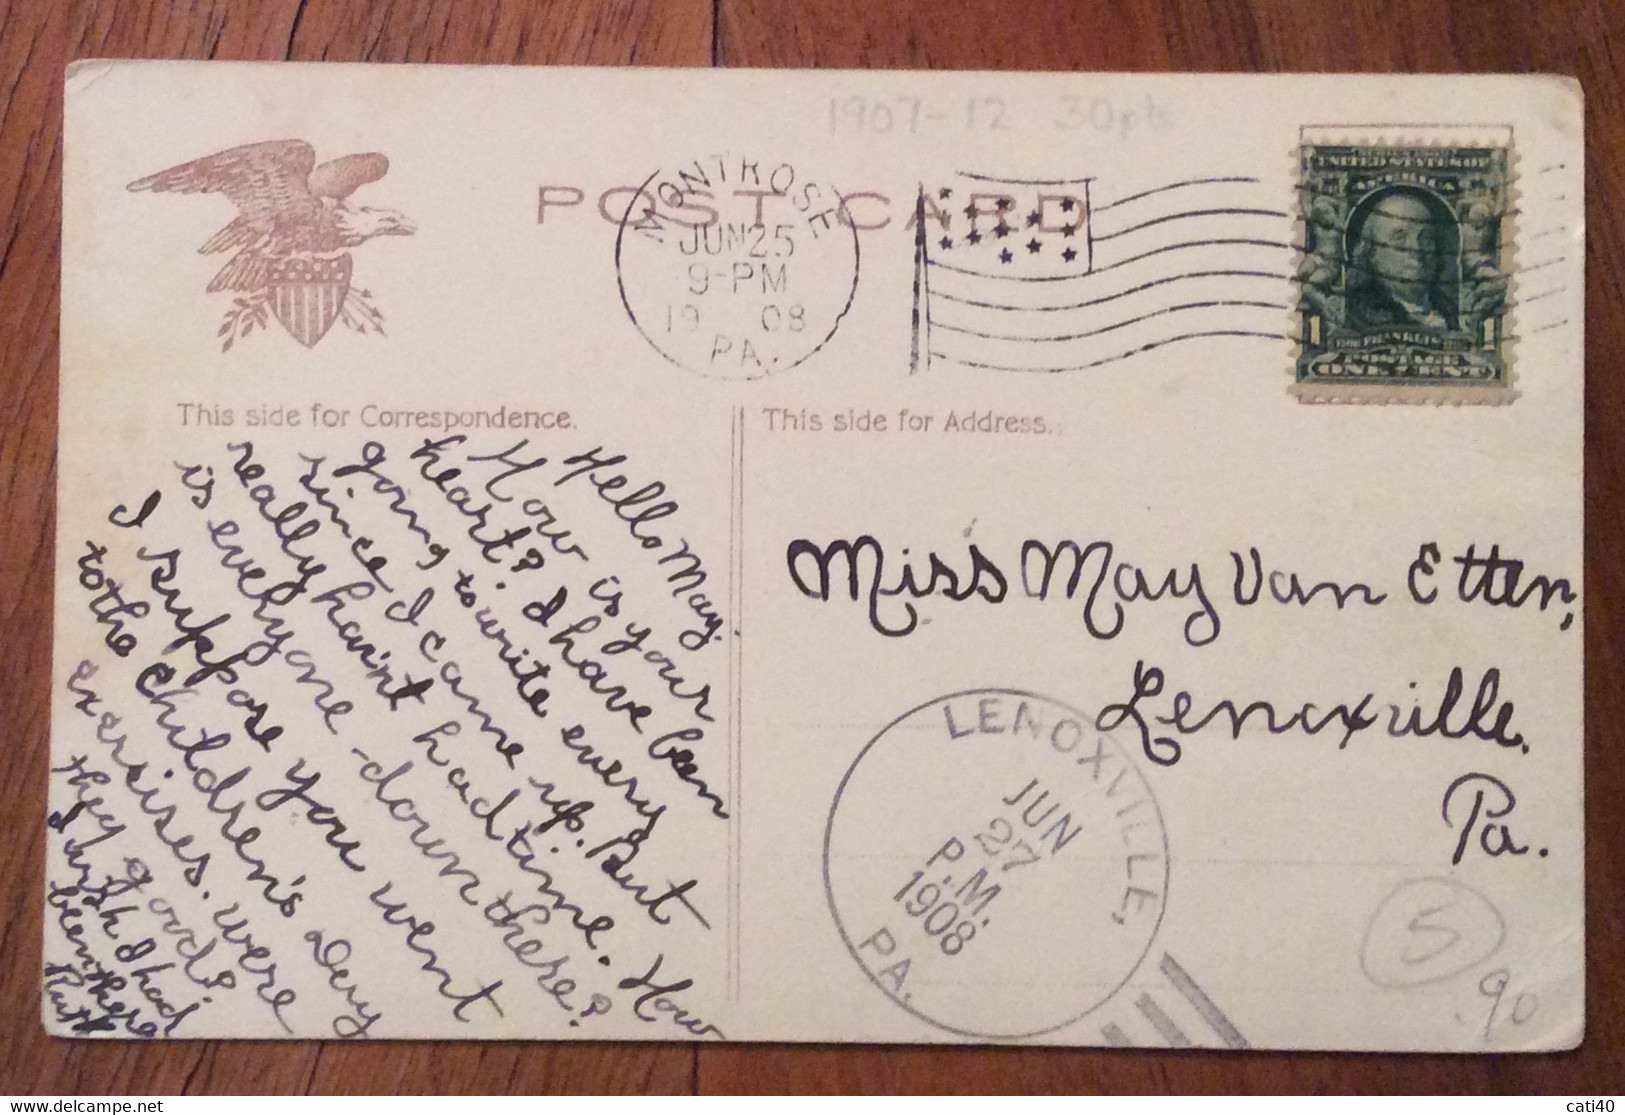 1907-12 30pts
POST CARD
MONTROSE
JUN 25
9-PM
1908
PA.
UNITED STATES OF
AMERICA
1 FRANKLIN 1
POSTAGE
ONE CENT
This side for Correspondence.
This side for Address.
Hello May.
How is your
heart? I have been
going to write every
since I came up. But
really hav'nt had time. How
is everyone down there?
I suppose you went
to the children's Day
exersises. were
they good?
I wish I had
been there
Ruth
Miss May Van Etten,
Lenoxville.
Pa.
LENOXVILLE,
JUN
27
P.M.
1908
PA.
5
.90
cati40